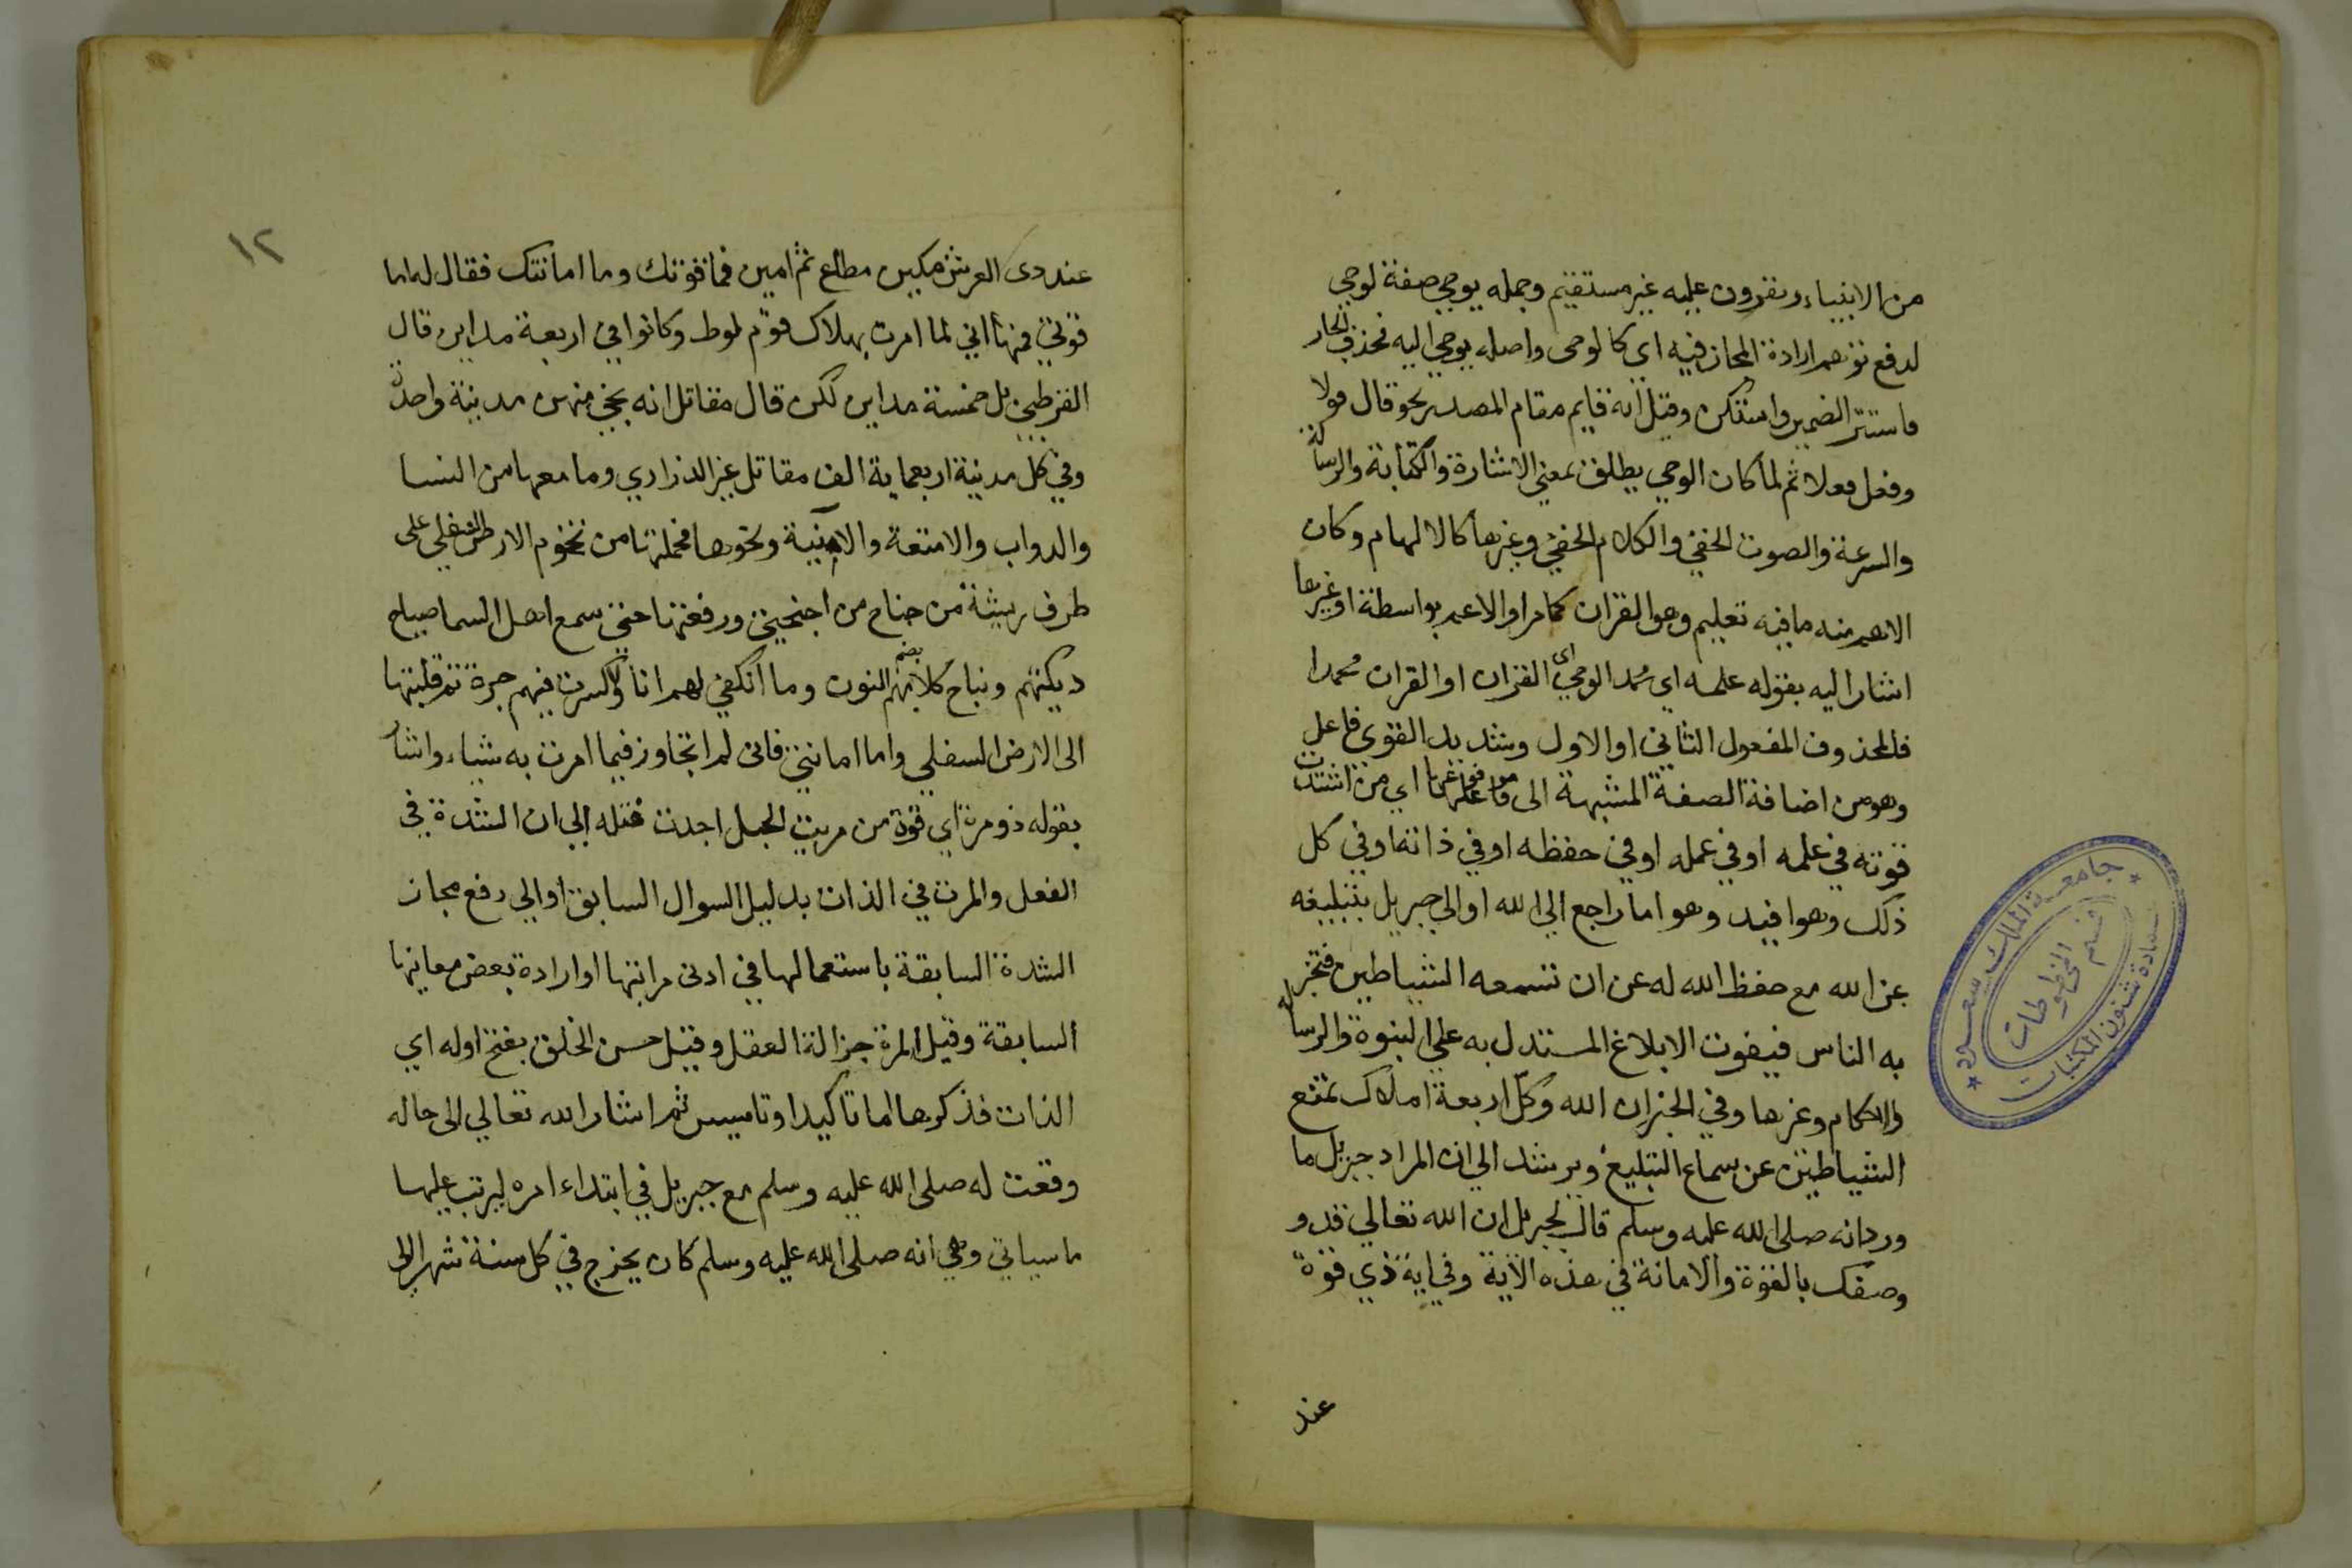 من الانبياء ونفرون عليه غير مستقيم وجمله يوحي صفة لوحي
لدفع توهم ارادة المجاز فيه اي كالوحى واصله يوحي اليه فحذف الجار
فاستتر الضمير واستكن وقيل انه قايم مقام المصدر نحو قال قولا
وفعل فعلا ثم لما كان الوحي يطلق بمعني الاشارة والكتابة والرسالة
والسرعة والصوت الخفي والكلام الخفي وغيرها كالالهام وكان
الاهم منه مافيه تعليم وهو القران كما مر او الاعم بواسطة او غيرها
اشار اليه بقوله علمه اي محمد الوحي اي القران او القران محمدا
فالمحذوف المفعول الثاني او الاول وشديد القوي فاعل
وهو من اضافة الصفة المشبهة الى فاعلها اي من اشتدت
قوته في علمه او في عمله او في حفظه او في ذاته او في كل
ذلك وهو افيد وهو اما راجع الي الله او الي جبريل بتبليغه
عن الله مع حفظ الله له عن ان تسمعه الشياطين فتخبر
به الناس فيفوت الابلاغ المستدل به علي النبوة والرسالة
والاحكام وغيرها وفي الخبر ان الله وكل اربعة املاك تمنع
الشياطين عن سماع التبليغ ويرشد الي ان المراد جبريل ما
ورد انه صلى الله عليه وسلم قال لجبريل ان الله تعالي قد و
وصفك بالقوة والامانة في هذه الاية وفي اية ذي قوة
عند
جامعة الملك سعود
قسم المخطوطات
عمادة شئون المكتبات
١٢
عند دى العرش مكين مطاع ثم امين فما قوتك وما امانتك فقال له اما
قوتي فمنها اني لما امرت بهلاك قوم لوط وكانوا في اربعة مداين قال
القرطبي بل خمسة مداين لكن قال مقاتل انه نجي منهن مدينة واحدة
وفي كل مدينة اربعماية الف مقاتل غير الذراري وما معها من النسا
والدواب والامتعة والابنية ونحوها فحملتها من تخوم الارض السفلي على
طرف ريشة من جناح من اجنحيتي ورفعتها حتي سمع اهل السما صياح
ديكتهم ونباح كلابهم بضم النون وما انكفي لهم انا ولا كسرت فيهم جرة ثم قلبتها
الى الارض السفلي واما امانتي فانى لم اتجاوز فيما امرت به شياء واشار
بقوله ذو مرة اي قوة من مريت الحبل اجدت فتله الي ان الشدة في
الفعل والمرت في الذات بدليل السوال السابق او الي رفع مجاز
الشدة السابقة باستعمالها في ادنى مراتبها او ارادة بعض معانيها
السابقة وقيل المرة جزالة العقل وقيل حسن الخلق بفتح اوله اي
الذات فذكرها اما تاكيدا او تاسيس ثم اشار الله تعالي الى حاله
وقعت له صلى الله عليه وسلم مع جبريل في ابتداء امره ليرتب عليها
ما سياتي وهي انه صلى الله عليه وسلم كان يخرج في كل سنة شهرا الى